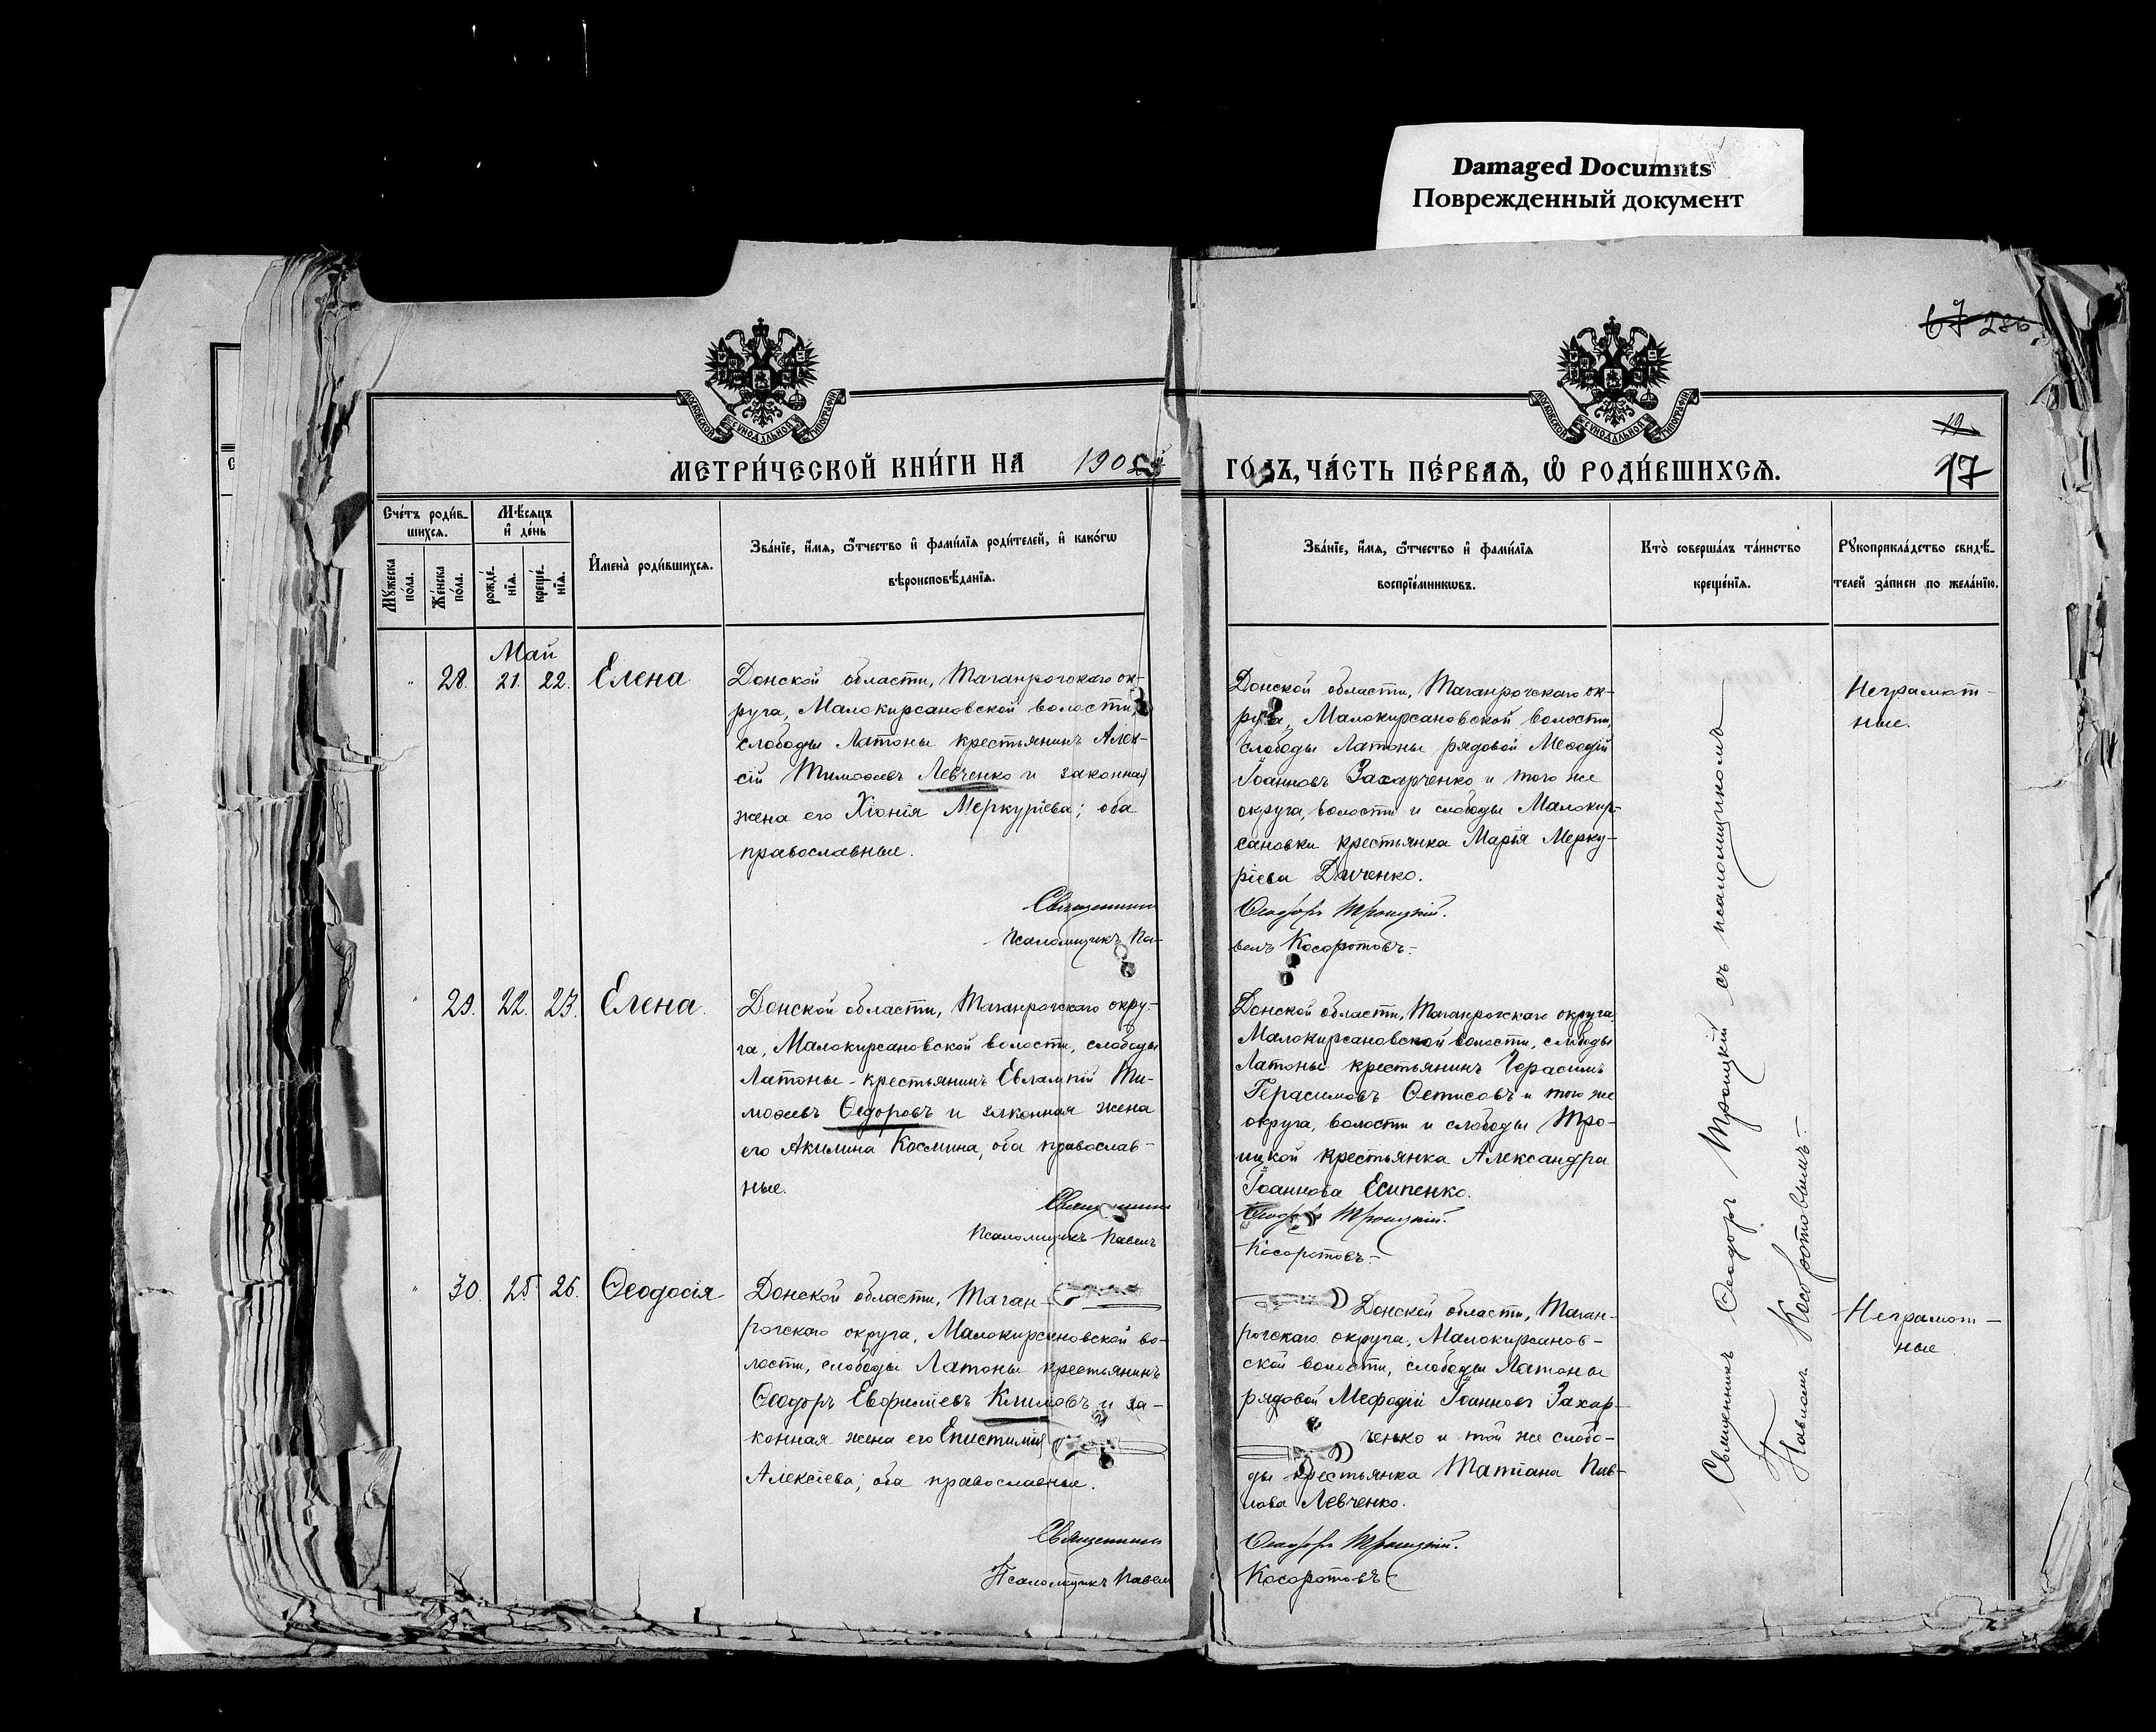 Damaged Documnts
Поврежденный документ
286
МОСКОВСКОЙ СѴНОДАЛЬНОЙ ТИПОГРАФІИ
МОСКОВСКОЙ СѴНОДАЛЬНОЙ ТИПОГРАФІИ
19
МЕТРИ́ЧЕСКОЙ КНИ́ГИ НА 190
ГОДЪ, ЧА́СТЬ ПЕ́РВАѦ, Ѡ РОДИ́ВШИХСѦ.
17
Сче́тъ роди́в-
шихсѧ.
Мꙋ́жеска
по́ла.
Же́нска
по́ла.
Мѣ́сѧцъ
и҆ де́нь
рожде́-
нїѧ.
креще́-
нїѧ.
И҆мена̀ роди́вшихсѧ.
Зва́нїе, и҆́мѧ, ѻ҆́тчество и҆ фами́лїѧ роди́телей, и҆ како́гѡ
вѣроисповѣ́данїѧ.
Зва́нїе, и҆́мѧ, ѻ҆́тчество и҆ фами́лїѧ
воспрїе́мникѡвъ.
Кто̀ соверша́лъ та́инство
креще́нїѧ.
Рꙋкоприкла́дство свидѣ́-
телей за́писи по жела́нїю.
Май
" 28. 21. 22. Елена
Донской области, Таганрогскаго ок-
руга, Малокирсановской волости,
слободы Латоны крестьянинъ Алек-
сій Тимоѳеевъ Левченко и законная
жена его Хіонія Меркуріева; оба
православные.
Священникъ
Псаломщикъ Па-
Донской области, Таганрогскаго ок-
руга, Малокирсановской волости,
слободы Латоны рядовой Меѳодій
Іоанновъ Захарченко и того же
округа, волости и слободы Малокир-
сановки крестьянка Марія Мерку-
ріева Дниченко.
Ѳеодоръ Троицкій.
велъ Косоротовъ.-
Неграмот-
ные.
" 29. 22. 23. Елена.
Донской области, Таганрогскаго окру-
га, Малокирсановской волости, слободы
Латоны - крестьянинъ Евлампій Ти-
моѳеевъ Ѳедоровъ и законная жена
его Акилина Космина, оба православ-
ные.
Священникъ
Псаломщикъ Павелъ
Донской области, Таганрогскаго округа,
Малокирсановской волости, слободы
Латоны крестьянинъ Герасимъ
Герасимовъ и того же
округа, волости и слободы Тро-
ицкой крестьянка Александра
Іоаннова Есипенко.
Ѳеодоръ Троицкій.
Косоротовъ.-
" 30. 25. 26. Ѳеодосія
Донской области, Таган-
рогскаго округа, Малокирсановской во-
лости, слободы Латоны крестьянинъ
Ѳеодоръ Евфиміевъ Климовъ и за-
конная жена его Епистимія
Алексіева; оба православные.
Священникъ
Псаломщикъ Павелъ
Донской области, Таган-
рогскаго округа, Малокирсанов-
ской волости, слободы Латоны
рядовой Меѳодій Іоанновъ Захар-
ченко и той же слобо-
ды крестьянка Татіана Пав-
лова Левченко.
Ѳеодоръ Троицкій.
Косоротовъ
Священникъ Ѳеодоръ Троицкій съ псаломщикомъ
Павломъ Косоротовымъ.-
Неграмот-
ные